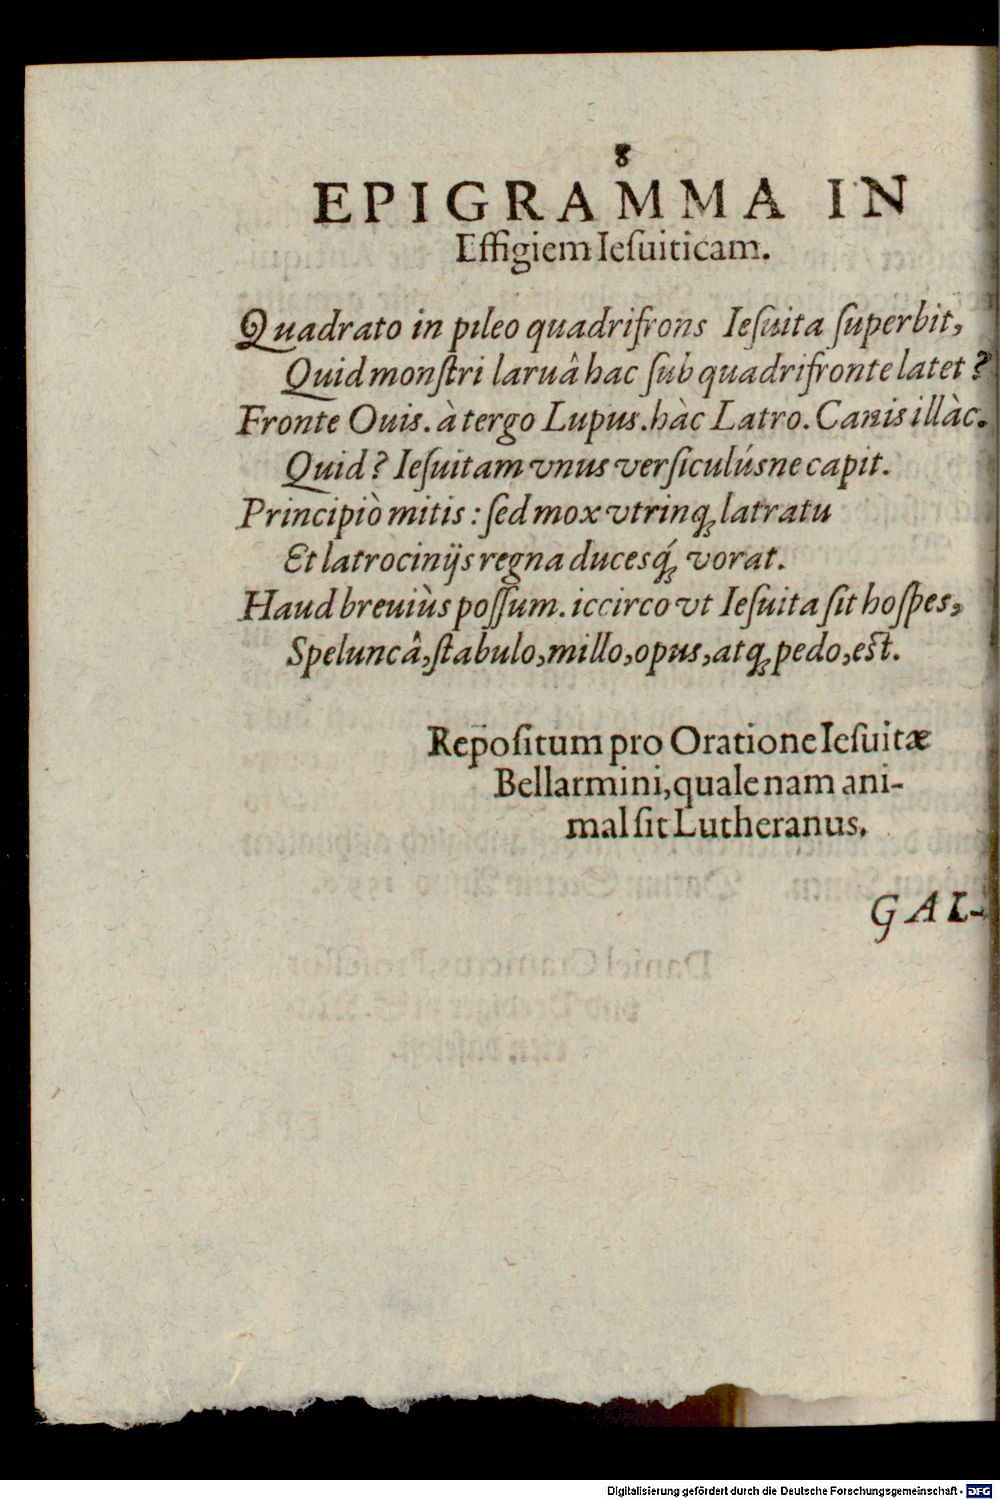 8
EPIGRAMMA IN
Effigiem Ieſuiticam.
Quadrato in pileo quadrifrons Ieſuita ſuperbit,
Quid monſtri laruâ hac ſub quadrifronte latet?
Fronte Ouis. à tergo Lupus. hàc Latro. Canis illàc.
Quid? Ieſuitam vnus verſiculúsne capit.
Principiò mitis: ſed mox vtrinq́ꝫ latratu
Et latrocinijs regna ducesq́ꝫ vorat.
Haud breuiùs poſſum. iccirco vt Ieſuita ſit hoſpes,
Speluncâ, ſtabulo, millo, opus, atqꝫ pedo, eſt.
Repoſitum pro Oratione Ieſuitæ
Bellarmini, quale nam ani-
mal ſit Lutheranus.
GAL-
Digitalisierung gefördert durch die Deutsche Forschungsgemeinschaft - DFG